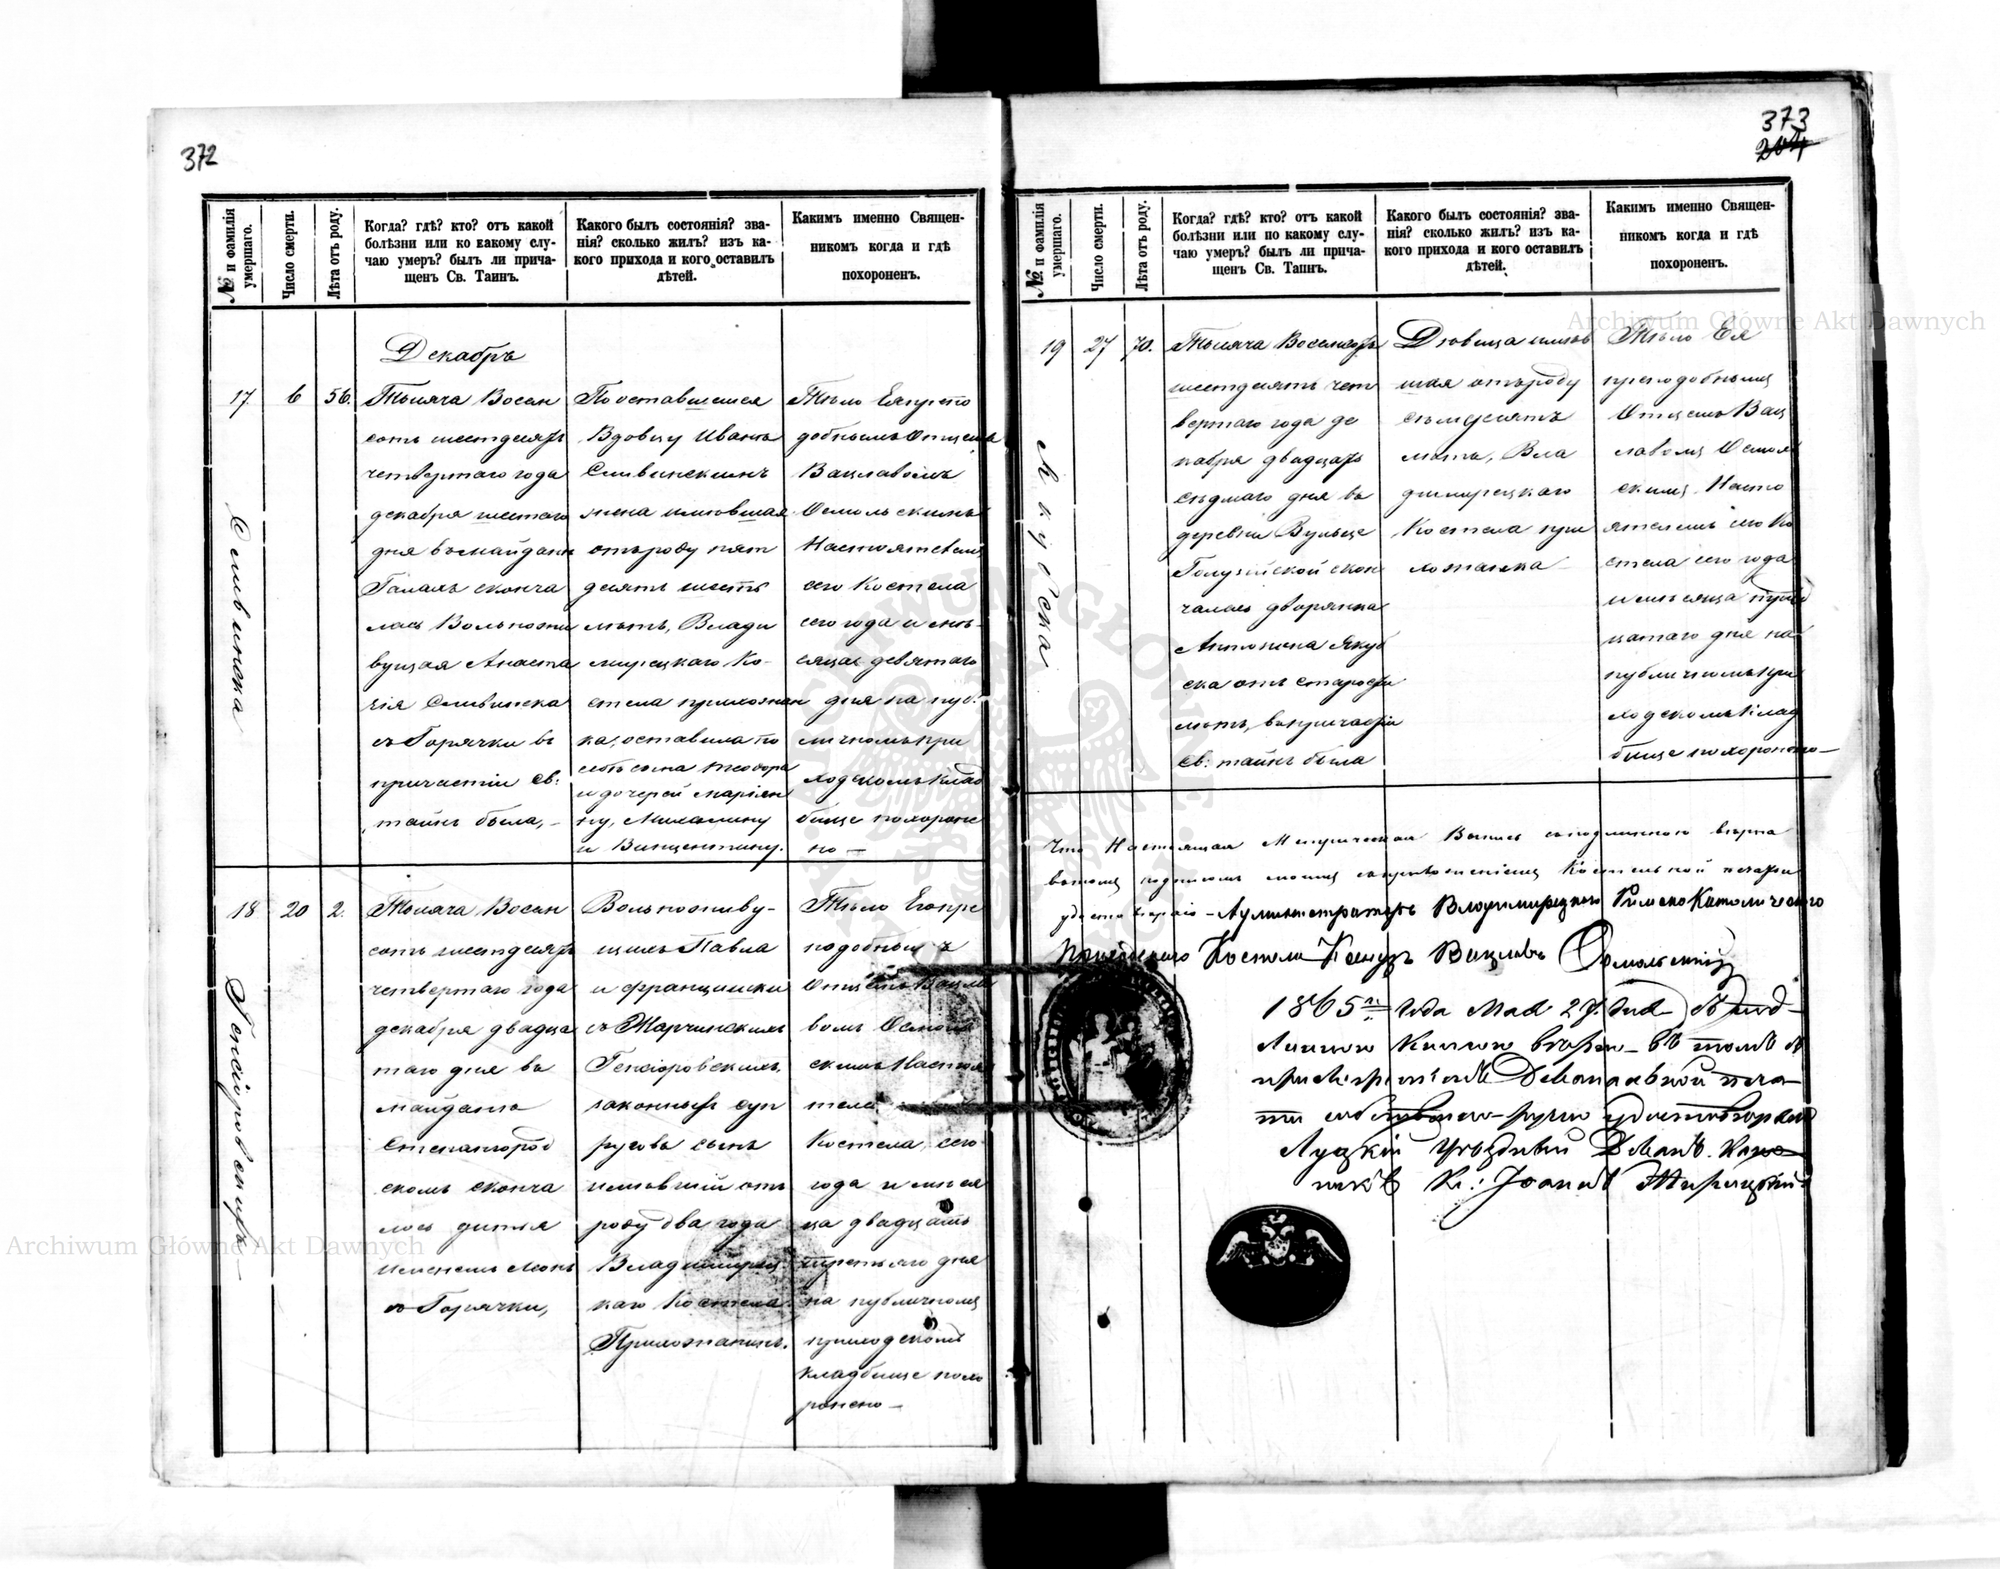 372
№ и фамилія умершаго.
Число смерти.
Лѣта отъ роду.
Когда? гдѣ? кто? отъ какой
болѣзни или по какому слу-
чаю умеръ? былъ ли прича-
щенъ Св. Таинъ.
Какого былъ состоянія? зва-
нія? сколько жилъ? изъ ка-
кого прихода и кого оставилъ
дѣтей.
Какимъ именно Священ-
никомъ когда и гдѣ
похороненъ.
Декабрь
17
6
56.
Сливинска
Тысяча Восем
сотъ шестдесятъ
четвертаго года
декабря шестаго
дня въ майдани
Галахъ сконча
лась Вольножи
вущая Анаста
зія Сливинска
съ Горячки въ
причастіи Св:
тайнъ была, –
По оставшемся
Вдовцу Иванъ
Сливинскимъ
жена имѣвшая
отъ роду пят
десятъ шесть
лѣтъ, Влади
мирецкаго Ко-
стела прихожан
ка, оставила по
себѣ сына Теодора
и дочерей Маріян
ну, Михалину
и Винцентину.
Тѣло Ея препо
добнымъ Отцемъ
Вацлавомъ
Осмольскимъ
Настоятелемъ
сего Костела
сего года и мѣ-
сяца девятаго
дня на пуб.
личномъ при
ходскомъ клад
бище похороне
но –
18
20
2.
Гонсіоровскихъ
Тысяча Восем
сотъ шестдесятъ
четвертаго года
декабря двадца
таго дня въ
майдано
Стехангород
скомъ сконча
лось дитья
именемъ Леонъ
съ Горячки,
Вольноживу-
щихъ Павла
и Францишки
съ Жарчинскихъ
Гонсіоровскихъ
законныхъ суп
руговъ сынъ
имѣвшій отъ
роду два года
Владимирец
каго Костела
Прихожанинъ.
Тѣло Его пре
подобным ъ
Отцемъ Вацла
вомъ Осмоль
скимъ Настоя
телемъ
Костела, сего
года и мѣся
ца двадцать
третьяго дня
на публичномъ
приходскомъ
кладбище похо
ронено –
373
204
№ и фамилія умершаго.
Число смерти.
Лѣта отъ роду.
Когда? гдѣ? кто? отъ какой
болѣзни или по какому слу-
чаю умеръ? былъ ли прича-
щенъ Св. Таинъ.
Какого былъ состоянія? зва-
нія? сколько жилъ? изъ ка-
кого прихода и кого оставилъ
дѣтей.
Какимъ именно Священ-
никомъ когда и гдѣ
похороненъ.
19
27
70.
Якубска
Тысяча Восемсотъ
шестдесятъ чет
вертаго года де
кабря двадцать
седмаго дня въ
деревни Вульце
Голузійской скон
чалась дворянка
Антонина Якуб
ска отъ старости
лѣтъ, въ причастіи
Св: тайнъ была
Дѣвица имѣв
шая отъ роду
семдесятъ
лѣтъ, Вла
димирецкаго
Костела при
хожанка
Тѣло Ея
преподобнымъ
Отцемъ Вац
лавомъ Осмоль
скимъ Насто
ятелемъ сего Ко
стела сего года
и мѣсяца трид
цатаго дня на
публичномъ при
ходскомъ клад
бище похоронено –
Что Настоящая Метрическая Выпись съ подлинною вѣрна
въ томъ подписомъ моимъ съ приложеніемъ Костельной печати
удостовѣряю – Администраторъ Владимирецкого Римско Католического
Приходского Костела Ксендзъ Вацлавъ Осмольскій
1865го Года Мая 27. дня с под-
линною книгою вѣрно – въ томъ с
приложеніемъ Деканальной печа-
ти собственно-ручно удостовѣряю
Луцкій Уѣздный Деканъ. Кано-
никъ Кс: Іоаннъ
Archiwum Główne Akt Dawnych
Archiwum Główne Akt Dawnych